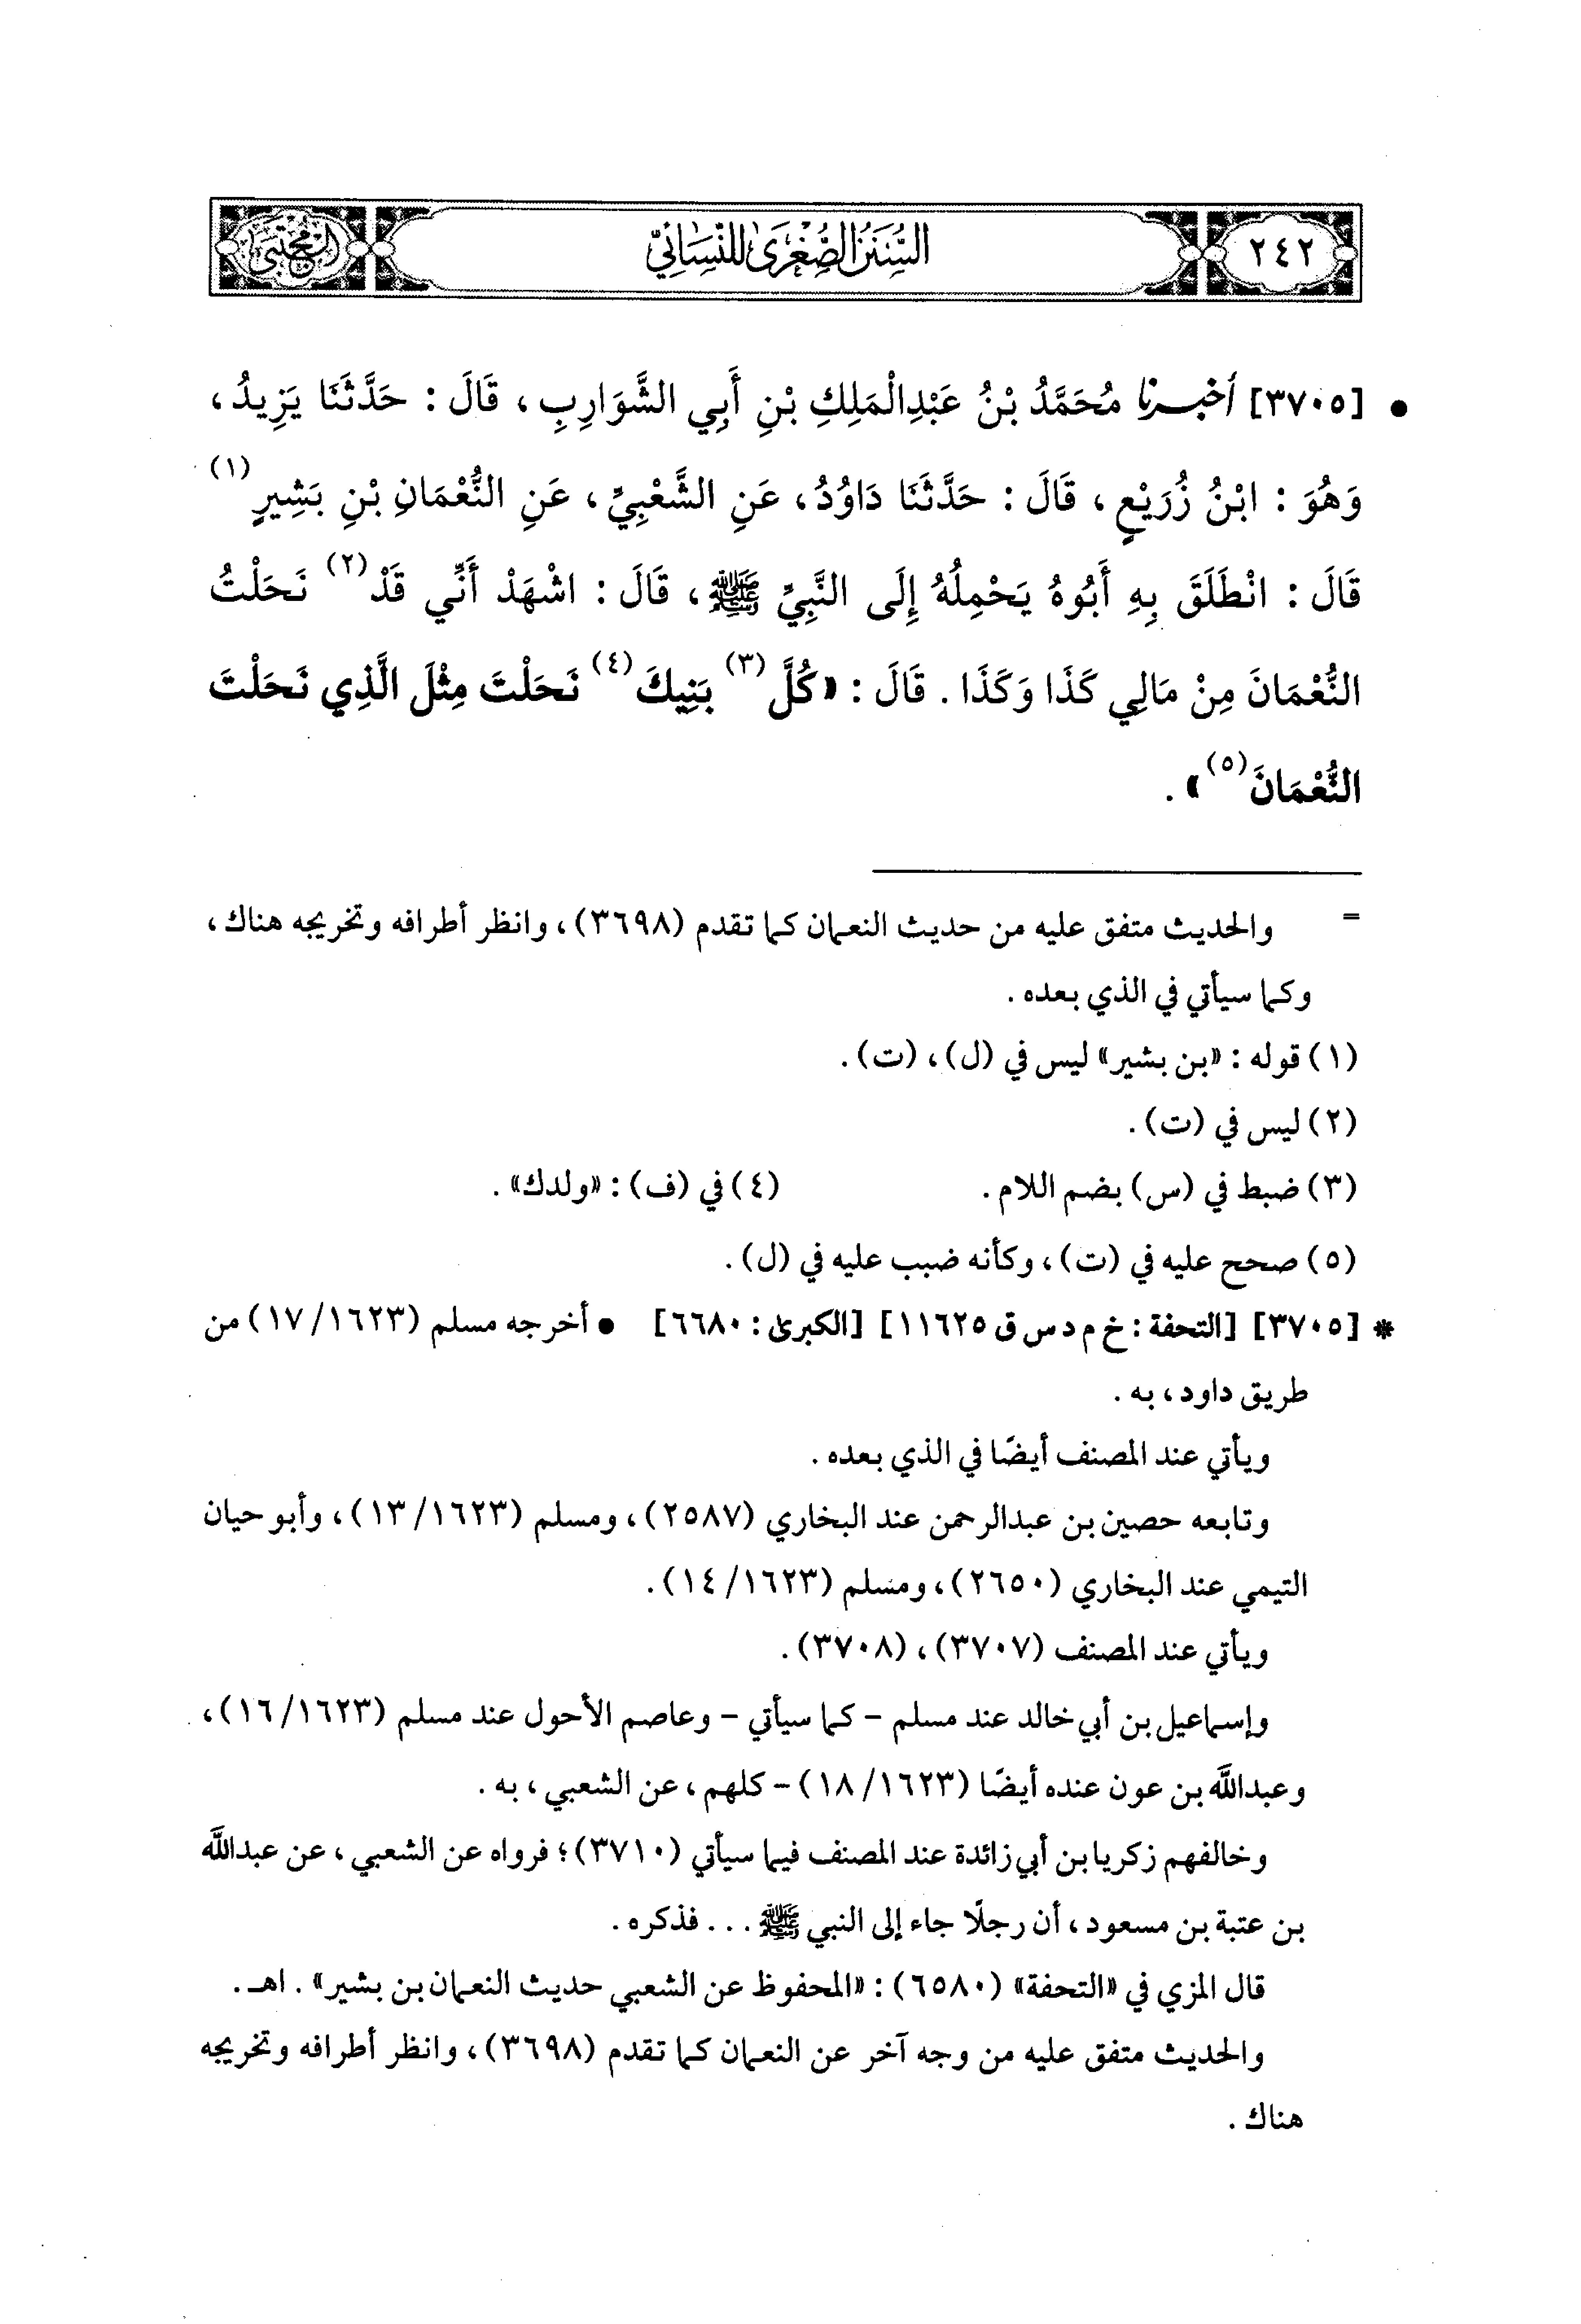 ٢٤٢
السُّنَنُ الصُّغْرَىٰ لِلنَّسَائِيِّ
المجتبى
• [٣٧٠٥] أخبرنا مُحَمَّدُ بْنُ عَبْدِالْمَلِكِ بْنِ أَبِي الشَّوَارِبِ، قَالَ : حَدَّثَنَا يَزِيدُ،
وَهُوَ : ابْنُ زُرَيْعٍ، قَالَ : حَدَّثَنَا دَاوُدُ، عَنِ الشَّعْبِيِّ، عَنِ النُّعْمَانِ بْنِ بَشِيرٍ(١)
قَالَ : انْطَلَقَ بِهِ أَبُوهُ يَحْمِلُهُ إِلَى النَّبِيِّ ﷺ، قَالَ : اشْهَدْ أَنِّي قَدْ(٢) نَحَلْتُ
النُّعْمَانَ مِنْ مَالِي كَذَا وَكَذَا . قَالَ : «كُلَّ(٣) بَنِيكَ(٤) نَحَلْتَ مِثْلَ الَّذِي نَحَلْتَ
النُّعْمَانَ(٥)» .
= والحديث متفق عليه من حديث النعمان كما تقدم (٣٦٩٨)، وانظر أطرافه وتخريجه هناك،
وكما سيأتي في الذي بعده .
(١) قوله : «بن بشير» ليس في (ل)، (ت).
(٢) ليس في (ت) .
(٣) ضبط في (س) بضم اللام . (٤) في (ف) : «ولدك» .
(٥) صحح عليه في (ت)، وكأنه ضبب عليه في (ل) .
* [٣٧٠٥] [التحفة : خ م د س ق ١١٦٢٥] [الكبرىٰ : ٦٦٨٠] • أخرجه مسلم (١٧/١٦٢٣) من
طريق داود، به .
ويأتي عند المصنف أيضًا في الذي بعده .
وتابعه حصين بن عبدالرحمن عند البخاري (٢٥٨٧)، ومسلم (١٣/١٦٢٣)، وأبو حيان
التيمي عند البخاري (٢٦٥٠)، ومسلم (١٤/١٦٢٣).
ويأتي عند المصنف (٣٧٠٧)، (٣٧٠٨).
وإسماعيل بن أبي خالد عند مسلم - كما سيأتي - وعاصم الأحول عند مسلم (١٦/١٦٢٣)،
وعبدالله بن عون عنده أيضًا (١٨/١٦٢٣) - كلهم، عن الشعبي، به .
وخالفهم زكريا بن أبي زائدة عند المصنف فيما سيأتي (٣٧١٠)؛ فرواه عن الشعبي، عن عبدالله
بن عتبة بن مسعود، أن رجلًا جاء إلى النبي ﷺ . . . فذكره .
قال المزي في «التحفة» (٦٥٨٠) : «المحفوظ عن الشعبي حديث النعمان بن بشير» . اهـ .
والحديث متفق عليه من وجه آخر عن النعمان كما تقدم (٣٦٩٨)، وانظر أطرافه وتخريجه
هناك .